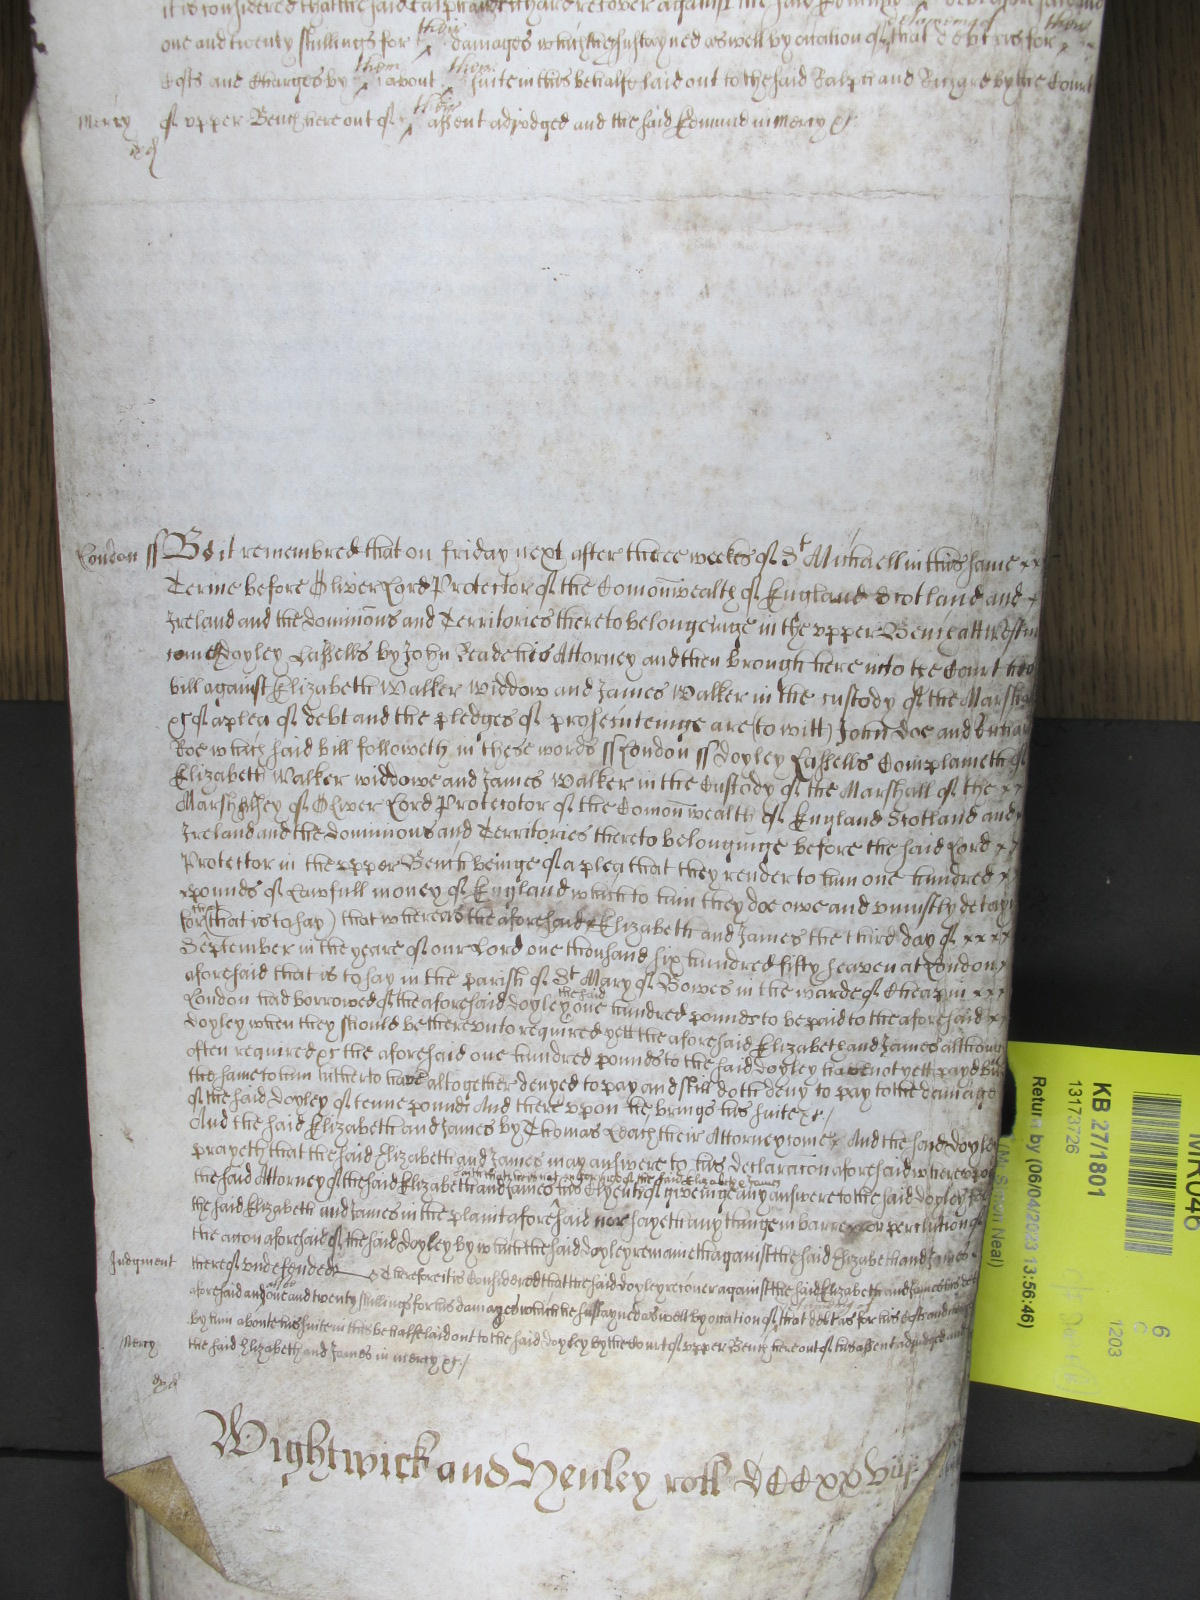 it is considered that the said Ralph and Richard recover against the said Edmund debt aforesaid and
one and twenty shillings for their damages which they sustayned as well by occation of the deteyneing of that debt as for their
Costs and Charges by them about their suite in this behalfe laid out to the said Ralph and Richard by the Court
Mercy of upper Bench here out of their assent adjudged and the said Edmund in mercy &c
London ss Be it remembred that on friday next after three weekes of St Michaell in this same
Terme before Oliver Lord Protector of the Comonwealth of England Scotland and
Ireland and the dominions and Territories thereto belongeinge in the upper Bench att Westm
come Doyley Lassells by John Reade his Attorney and then brought here into the Court his
bill against Elizabeth Walker Widdow and James Walker in the custody of the Marshall
&c of a plea of debt and the pledges of prosecuteinge are (to witt) John Doe and Richard
Roe which said bill followeth in these words ss London ss Doyley Lassells Complaineth of
Elizabeth Walker widdowe and James Walker in the Custody of the Marshall of the
Marshalsey of Oliver Lord Protector of the Comonwealth of England Scotland and
Ireland and the dominions and Territories thereto belonginge before the said Lord
Protector in the upper Bench beinge of a plea that they render to him one hundred
pounds of Lawfull money of England which to him they doe owe and uniustly detayne
for that (that is to say) that whereas the aforesaid Elizabeth and James the third day of
September in the yeare of our Lord one thousand six hundred fifty seaven at London
aforesaid that is to say in the parish of St Mary of Bowes in the warde of Cheap in
London had borrowed of the aforesaid Doyley the said one hundred pounds to be paid to the aforesaid
Doyley when they should be thereunto required yett the aforesaid Elizabeth and James although
often required &c the aforesaid one hundred pounds to the said Doyley have not yett payd but
the same to him hitherto have altogether denyed to pay and still doth deny to pay to the damage
of the said Doyley of tenne pounds And thereupon he brings his suite &c
And the said Elizabeth and James by Thomas Leach their Attorney come And the said Doyley
prayeth that the said Elizabeth and James may answere to his declaracon aforesaid whereupon
the said Attorney of the said Elizabeth and James his Clyents of giveinge any answere to the said Doyley for
the said Elizabeth and James in the plaint aforesaid nor sayeth any thinge in barre or perclution of
the action aforesaid of the said Doyley by which the said Doyley remaineth against the said Elizabeth and James
Judgment thereof undefended Therefore it is Considered that the said Doyley recover against the said Elizabeth and James his debt
aforesaid and alsoe one and twenty shillings for his damages which he sustayned as well by occation of that debt as for his costs and charges
by him about his suite in this behalfe laid out to the said Doyley by the Court of upper Bench here out of his assent adjudged and
Mercy the said Elizabeth and James in mercy &c
Wightwick and Henley roll DCCxxviij
MR046
KB 27/1801
13173726
(Mr Simon Neal)
Return by (06/04/2023 13:56:46)
6
C
1203